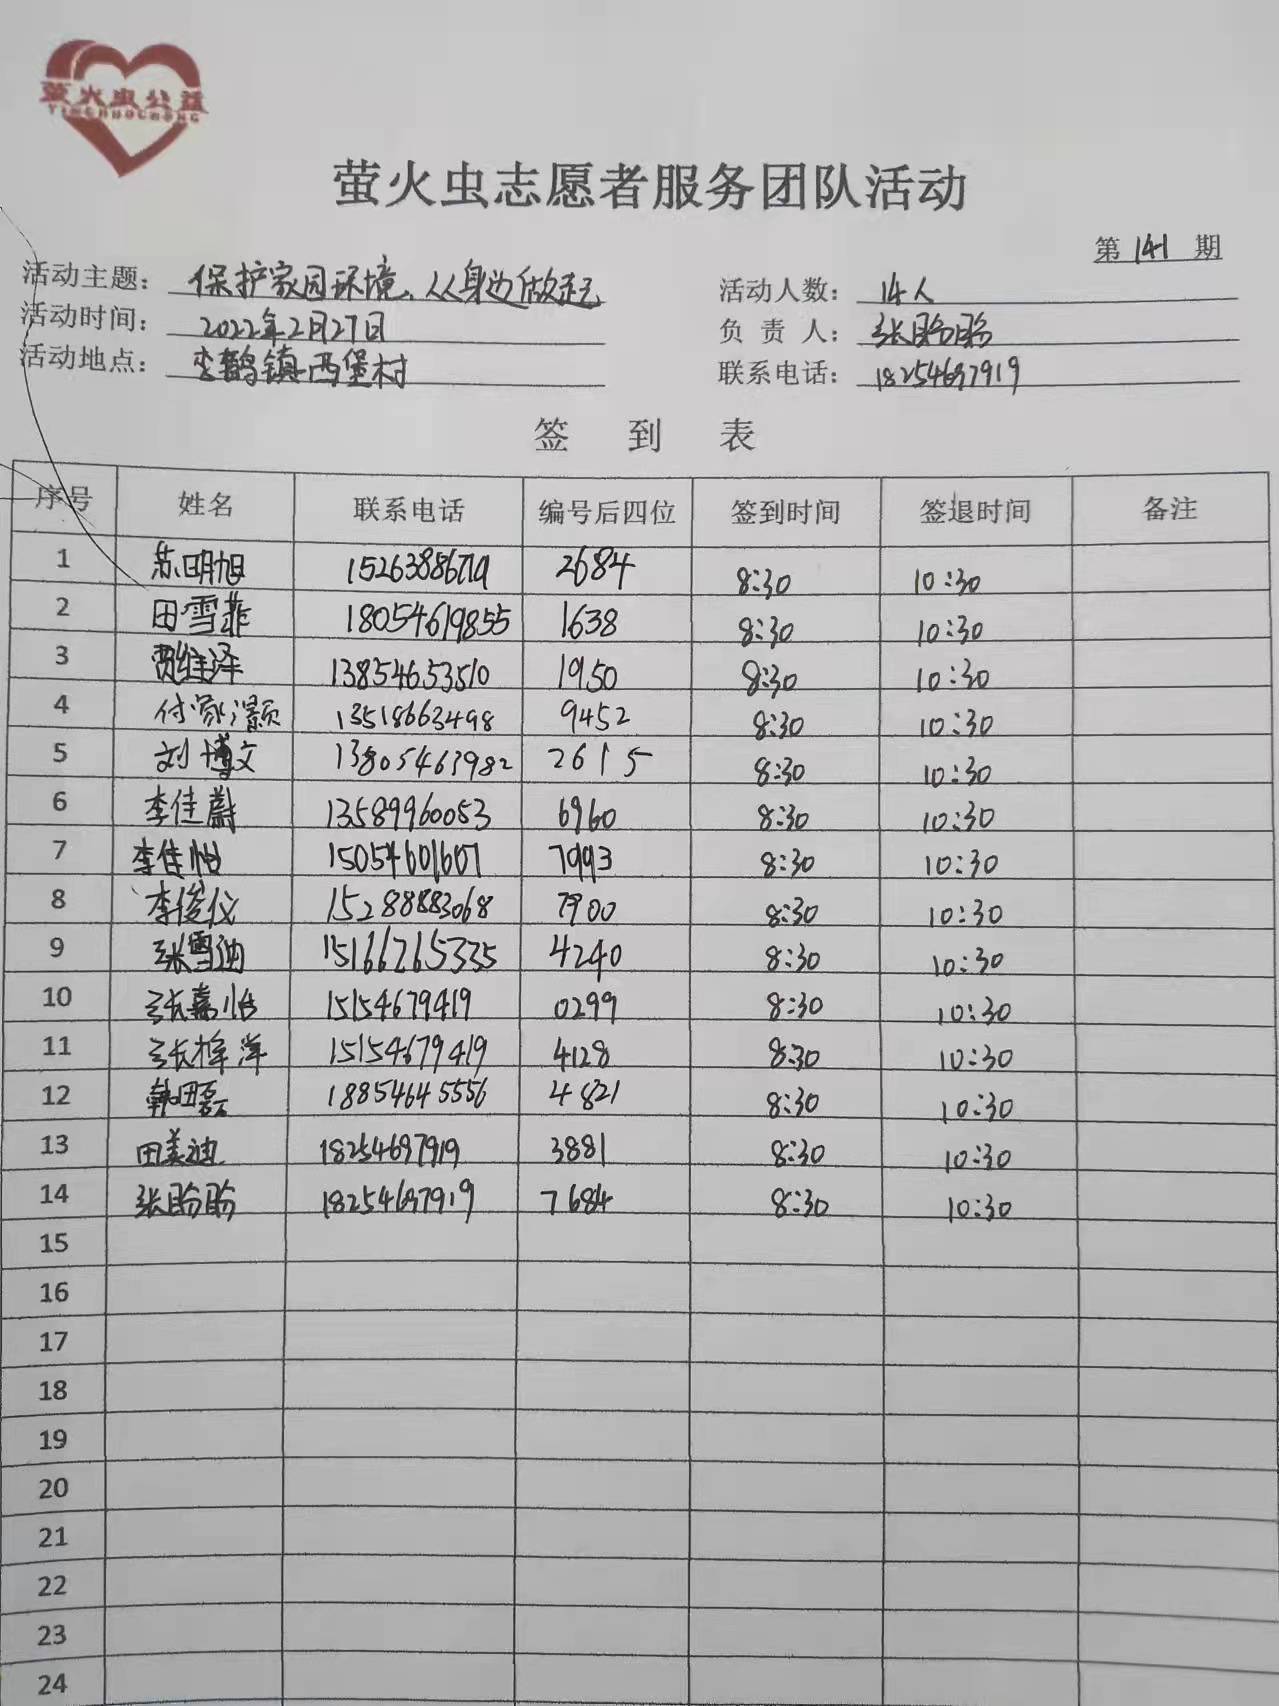 萤火虫公益
YINGHUOCHONG
萤火虫志愿者服务团队活动
第 141 期
活动主题: 保护家园环境、从身边做起 活动人数: 14人
活动时间: 2022年2月27日 负责人: 张盼盼
活动地点: 李鹊镇西堡村 联系电话: 18254697919
签到表
序号 姓名 联系电话 编号后四位 签到时间 签退时间 备注
1 苏明旭 2684 8:30 10:30
2 田雪菲 18054619855 1638 8:30 10:30
3 13854653510 1950 8:30 10:30
4 付家灏 13518663498 9452 8:30 10:30
5 刘博文 13805463982 2615 8:30 10:30
6 李佳蔚 13589960053 6960 8:30 10:30
7 李佳怡 15054601607 7993 8:30 10:30
8 李俊仪 15288883068 7900 8:30 10:30
9 张雪迪 15166265335 4240 8:30 10:30
10 张嘉怡 15154679419 0299 8:30 10:30
11 张梓洋 15154679419 4128 8:30 10:30
12 韩田磊 18854645556 4821 8:30 10:30
13 田美迪 18254697919 3881 8:30 10:30
14 张盼盼 18254697919 7684 8:30 10:30
15
16
17
18
19
20
21
22
23
24